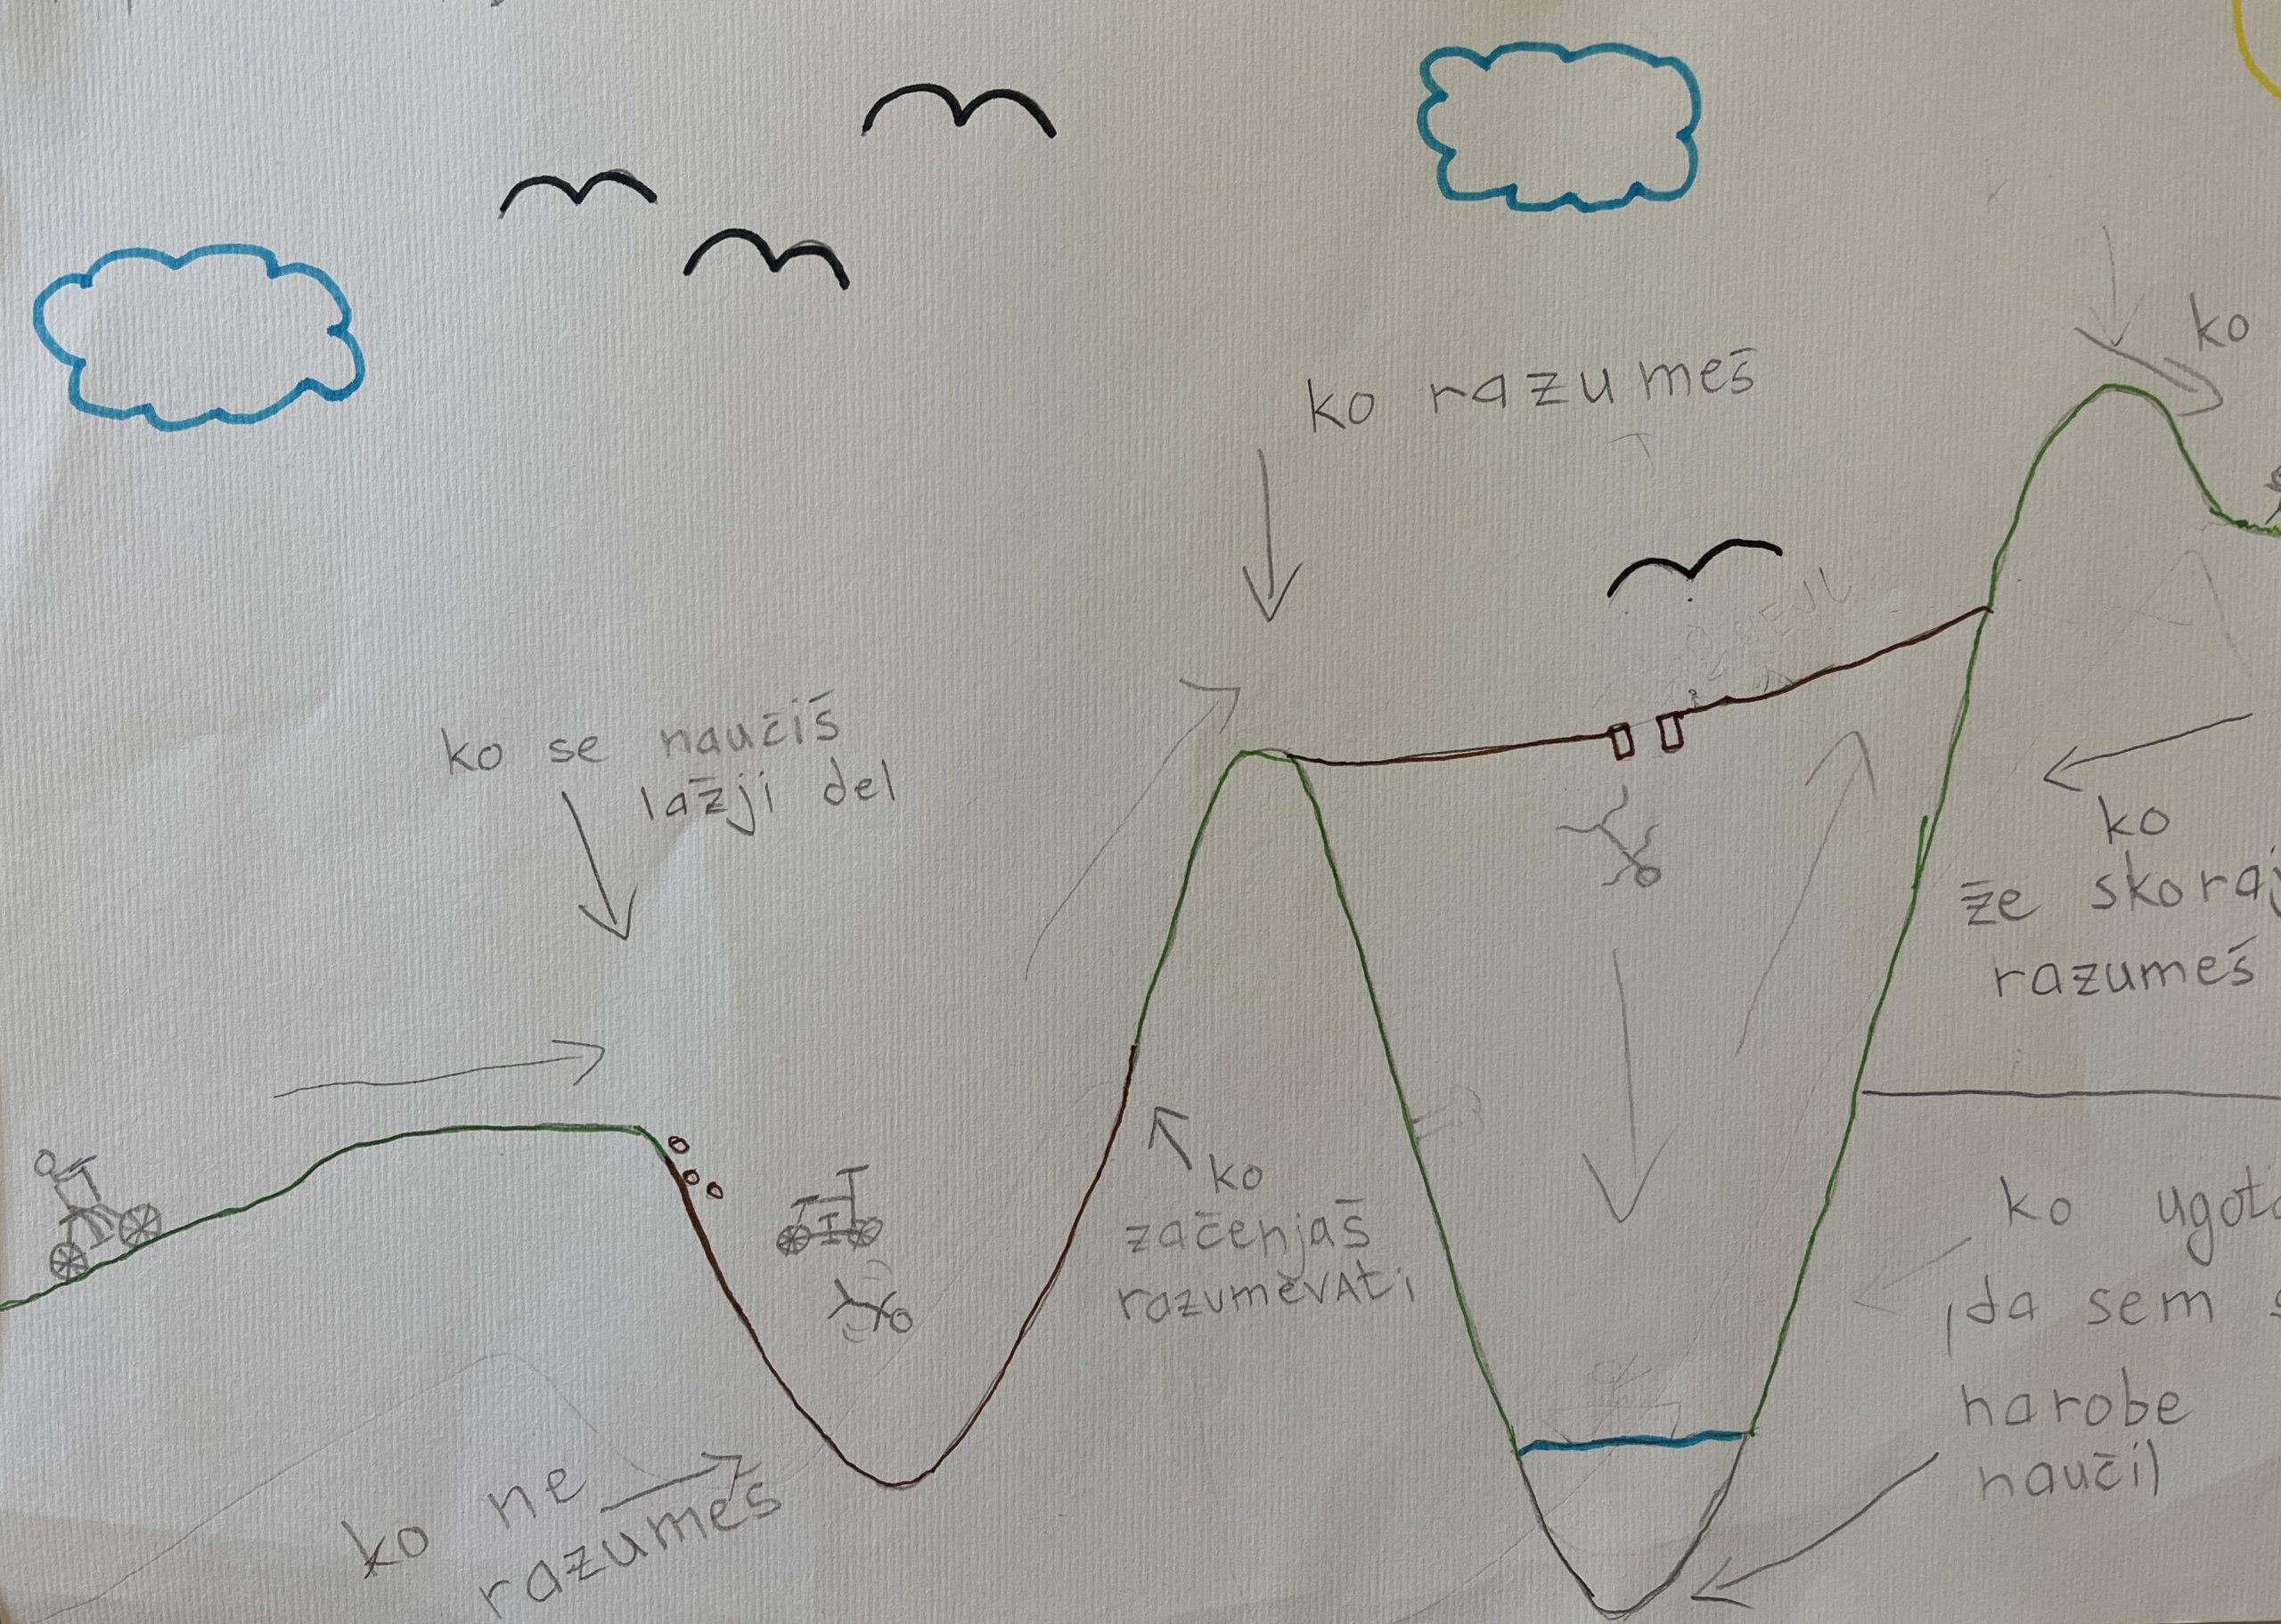 ko
ko razumeš
ko se naučiš
lažji del
ko
že skoraj
razumeš
ko
začenjaš
razumevati
ko
da sem
narobe
naučil
ko ne
razumeš